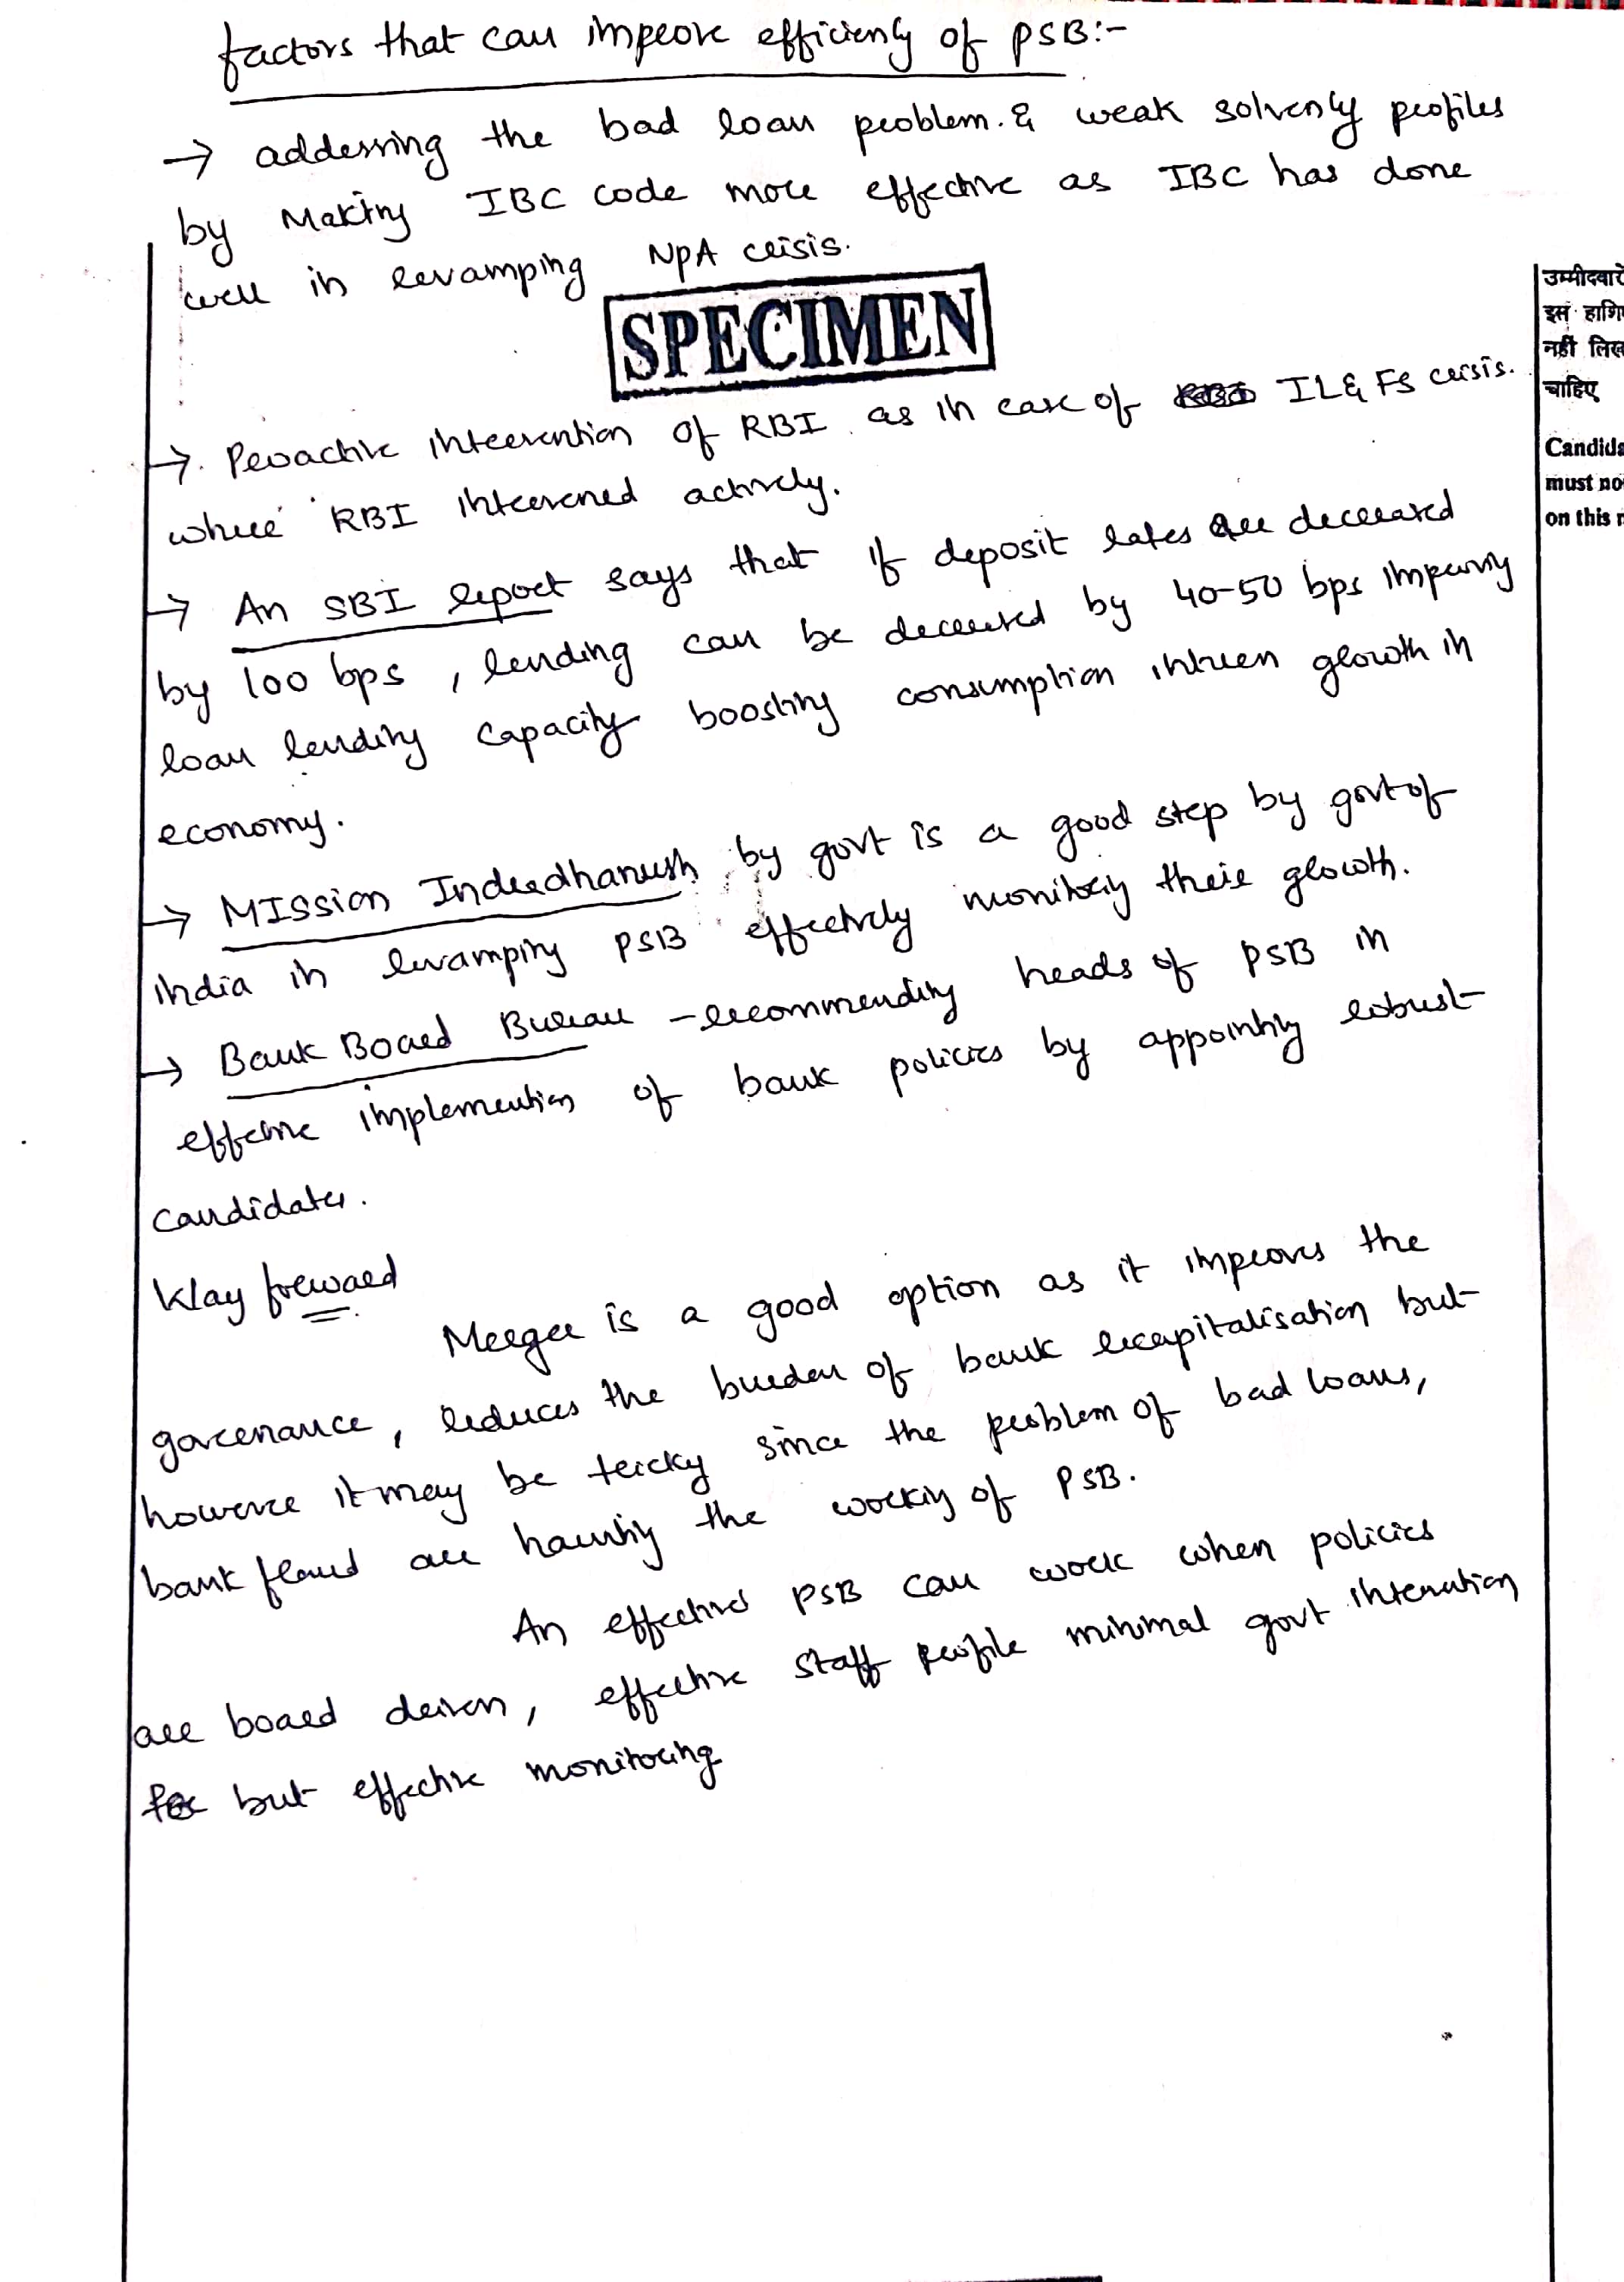 factors that can improve efficiency of PSB:-
→ addressing the bad loan problem. & weak solvency profiles
by Making IBC code more effective as IBC has done
well in revamping NPA crisis.
SPECIMEN
→. Proactive intervention of RBI as in case of IL&FS crisis.
where RBI intervened actively.
→ An SBI report says that if deposit rates are decreased
by 100 bps, lending can be decreased by 40-50 bps improving
loan lending capacity boosting consumption growth in
economy.
→ MISsion Indradhanush by govt is a good step by govt of
India in revamping PSB effectively monitoring their growth.
→ Bank Board Bureau - recommending heads of PSB in
effective implemention of bank policies by appointing robust
candidates.
Way forward
Merger is a good option as it improves the
governance, reduces the burden of bank recapitalisation but
however it may be tricky since the problem of bad loans,
bank fraud are haunting the working of PSB.
An effective PSB can work when policies
are board driven, effective staff profile minimal govt intervention
but effective monitoring
उम्मीदवारों
इस हाशि
नहीं लिख
चाहिए
Candida
must no
on this